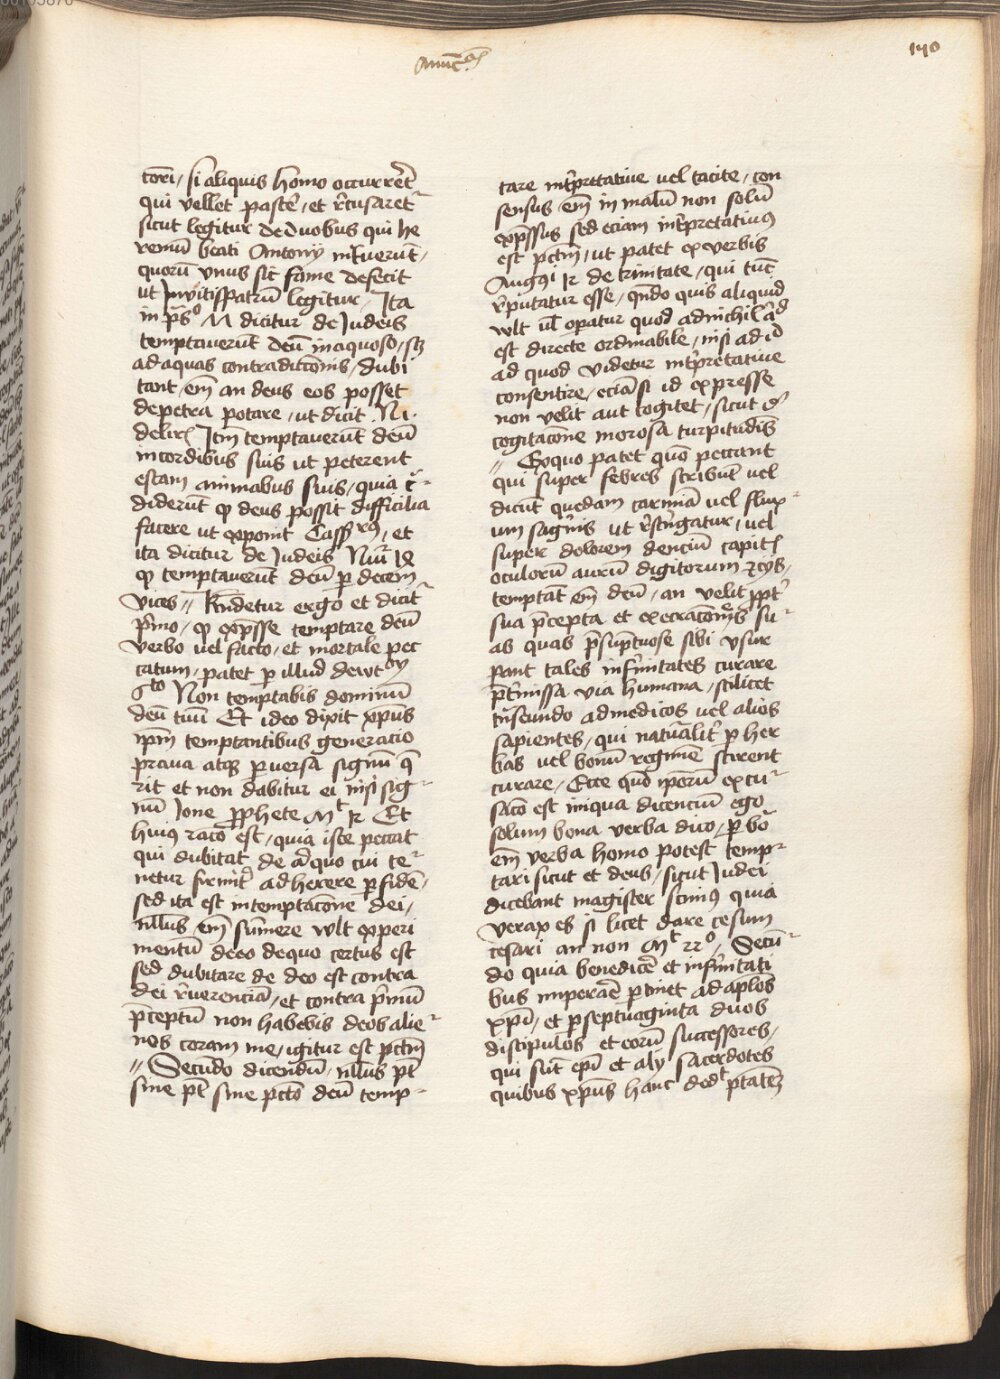 170
tori / si aliquis homo occurret̄
qui vellet paste᷑ / et rc̄usaret
sicut legitur de duobus qui he
remū beati Antonÿ intverūt /
quorū vnus sic̄ fame defecit
ut in vitispatrū legitur / Ita
in pŝ° dicitur de Judeis
temptaverūt deū inaquoso / sȝ
ad aquas contradictōnis / dubi
tant / em̄ an deus eos posset
de petra potare / ut dicit Ni.
delir̄ Itm̄ temptauerūt deū
in cordibus suis ut peterent
escam animabus suis / quia c̄-
diderūt qꝫ deus possit difficilia
facere ut expoīt Cass / et
ita dicitur de Judeis Nūi
qꝫ temptauerūt deū ꝑ decem
vices // Rn̄detur ergo et dicit᷑
pͥmo / qꝫ exp̄sse temptare deū
verbo uel facto / et mortale pec
catum / patet ꝑ illud dewt°
6to Non temptabis dominū
deū tuū Et ideo dixit xp̄us
ip̄m temptantibus generacio
praua atqꝫ ꝑuersa signū q̄
rit et non dabitur ei nisi sig-
nū Ione ꝓphete Mt 12 Et
huiꝰ racō est / quia iste peccat
qui dubitat de quo cui te-
netur firmit᷑ adherere ꝑ fidē /
sed ita est in temptacōne dei /
nllus em̄ sumere wlt experi
mentū deeo de quo certus est
sed dubitare de deo est contra
dei r̄uerenciā / et contra pͥmū
p̄ceptū non habebis deos alie-
nos coram me / igitur est pctm̄
// Secūdo dicendū / nllus pt̄
sine pt̄ sine pctō deū temp-
tare int̄pretatiue uel tacite / con
sensus em̄ in malū non solū
exp̄ssus sed eciam int̄pretatiuꝰ
est pctm̄ / ut patet ex verbis
Augꝰi 12 de trinitate / qui tūc
r̄putatur esse / qn̄do quis aliquid
wlt ul̄ oꝑatur quod ad nichil ad
est directe ordinabile / nisi ad id
ad quod videtur int̄pretatiue
consentire / eciā si id expresse
non velit aut cogitet / sicut
cogitacōne morosa turpitudīs
// Ex quo patet quō peccant
qui super febres scribūt uel
dicūt quedam carmīa uel flux-
um sagīnis ut rs̄tingatur / uel
super dolorem dencium capitꝭ
oculorū aurū digitorum
temptāt em̄ deū / an velit ppt̄
sua p̄cepta et execracōnes su-
as quas p̄sūptuose sibi vsur
pant tales infirmitates curare
p̄tmissa via humana / scilicet
tn̄seundo ad medicos uel alios
sapientes / qui naturalit᷑ ꝑ her
bas uel bonū regimē scirent
curare / Ecce quō ip̄orū excu-
sacō est iniqua dicenciū ego
solum bona verba dico / ꝑ bo
em̄ verba homo potest temp-
tari sicut et deus / sicut Judei
dicebant magister scimꝰ quia
verax es si licet dare cesum
cesari an non Mt 22° / Secū-
do quia benedicē et infirmitati
bus imperāe ꝑtinet ad ap̄los
xp̄i / et ꝑ septuaginta duos
discipulos et eorū successores /
qui sūt ep̄i et alÿ sacerdotes
quibus xp̄us hanc ded̄t ptatēꝫ